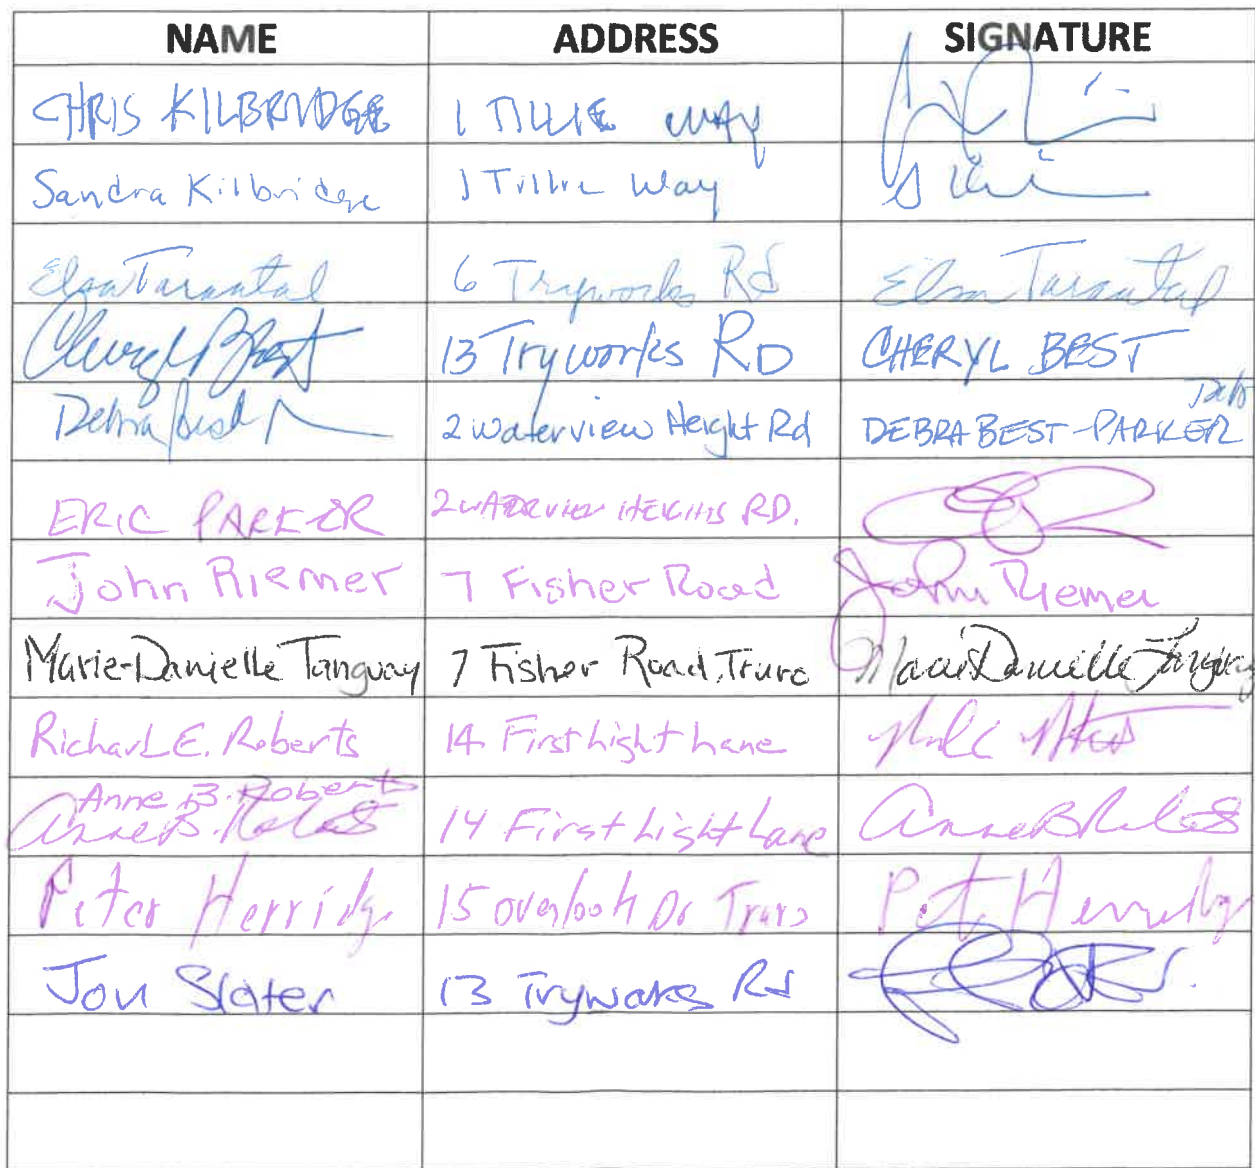 NAME ADDRESS SIGNATURE
CHRIS KILBRIDGE 1 TILLIE WAY
Sandra Kilbridge 1 Tillie Way
Elsa Tarantal 6 Tryworks Rd Elsa Tarantal
Cheryl Best 13 Tryworks RD CHERYL BEST
Debra Best 2 Waterview Height Rd DEBRA BEST-PARKER
ERIC PARKER 2 WATERVIEW HEIGHTS RD.
John Riemer 7 Fisher Road John Riemer
Marie-Danielle Tanguay 7 Fisher Road, Truro Marie Danielle Tanguay
Richard E. Roberts 14 First Light Lane
Anne B. Roberts
Anne B. Roberts 14 First Light Lane Anne B Roberts
Peter Herridge 15 Overlook Dr Truro Pet Herridge
Jon Slater 13 Tryworks Rd